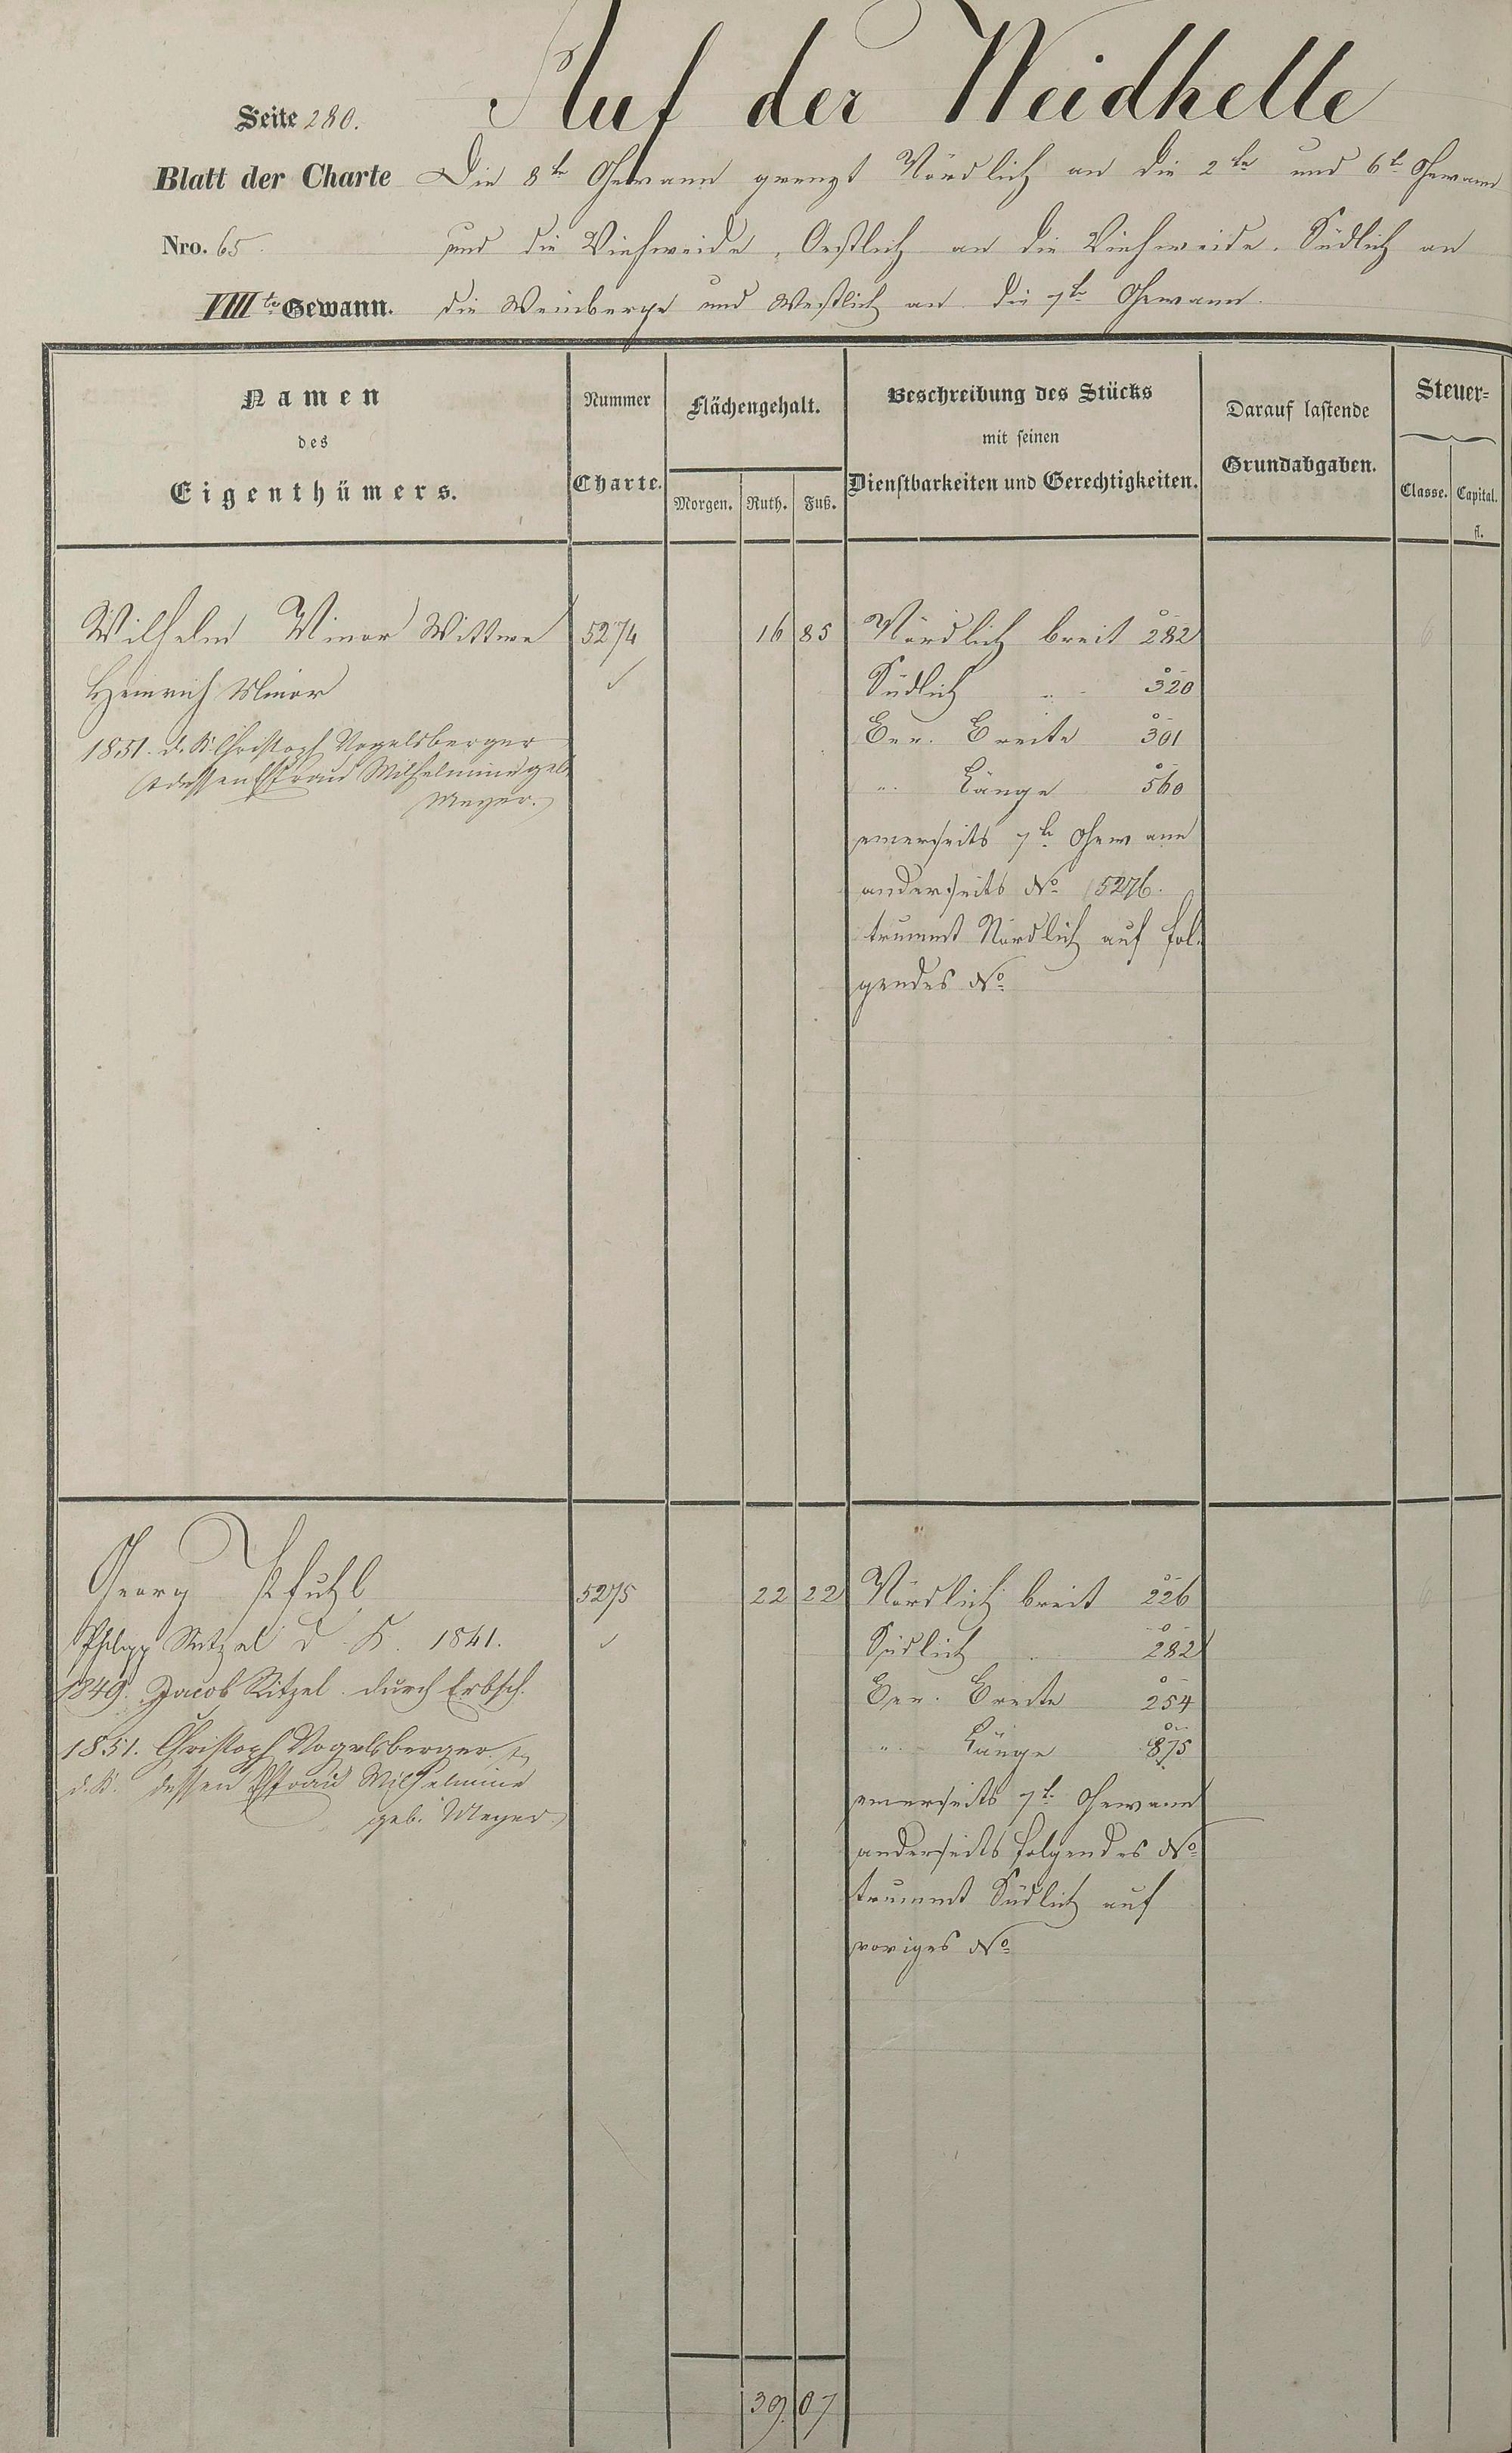 Auf der Weidhelle
Seite 280.
Blatt der Charte
Nro. 65
VIIIte Gewann.
Die 8te Gewann grenzt Nördlich an die 2te und 6te Gewann
und die Viehweide, Oestlich an die Viehweide, Südlich an
die Weinberge und Westlich an die 7te Gewann.
Namen
des
Eigenthümers.
Nummer
Charte.
Flächengehalt.
Morgen. Ruth. Fuß.
Beschreibung des Stücks
mit seinen
Dienstbarkeiten und Gerechtigkeiten.
Darauf lastende
Grundabgaben.
Steuer-
Classe. Capital.
fl.
Wilhelm Minor Wittwe 5274 16 85 Nördlich breit 282
Heinrich Minor ✓ Südlich " 320
1851. d. K. Christoph Vogelsberger Ber. Breite 301
dessen Ehfrau Wilhelmine geb. " Länge 560
Meyer.
einerseits 7te Gewann
anderseits No 5276.
trummt Nördlich auf fol-
gendes No
Georg Pfuhl 5275 22 22 Nördlich breit 226
Philipp Ritzel d. K. 1841. ✓ Südlich 282
1849. Jacob Ritzel durch Erbsch. Ber. Breite 254
1851. Christoph Vogelsberger " Länge 875
d. K. dessen Ehfrau Wilhelmine
geb. Meyer.
einerseits 7te Gewann
anderseits folgendes No
trummt Südlich auf
voriges No
39. 07